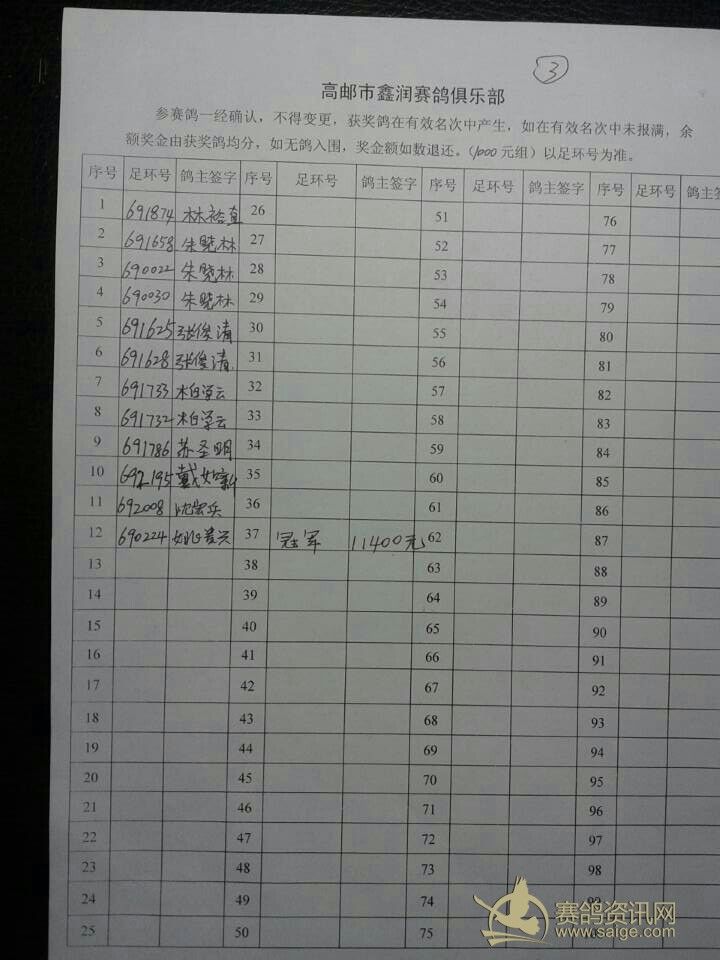 3
高邮市鑫润赛鸽俱乐部
参赛鸽一经确认，不得变更，获奖鸽在有效名次中产生，如在有效名次中未报满，余
额奖金由获奖鸽均分，如无鸽入围，奖金额如数退还。（1000元组）以足环号为准。
序号 足环号 鸽主签字 序号 足环号 鸽主签字 序号 足环号 鸽主签字 序号 足环号 鸽主签
1 691874 林裕直 26 51 76
2 691658 朱晓林 27 52 77
3 690022 朱晓林 28 53 78
4 690030 朱晓林 29 54 79
5 691625 张俊清 30 55 80
6 691628 张俊清 31 56 81
7 691733 柏学云 32 57 82
8 691732 柏学云 33 58 83
9 691786 苏圣明 34 59 84
10 692195 戴 35 60 85
11 692008 沈宏兵 36 61 86
12 690224 姚爱兴 37 冠军 11400元 62 87
13 38 63 88
14 39 64 89
15 40 65 90
16 41 66 91
17 42 67 92
18 43 68 93
19 44 69 94
20 45 70 95
21 46 71 96
22 47 72 97
23 48 73 98
24 49 74 99
25 50 75
赛鸽资讯网
www.saige.com